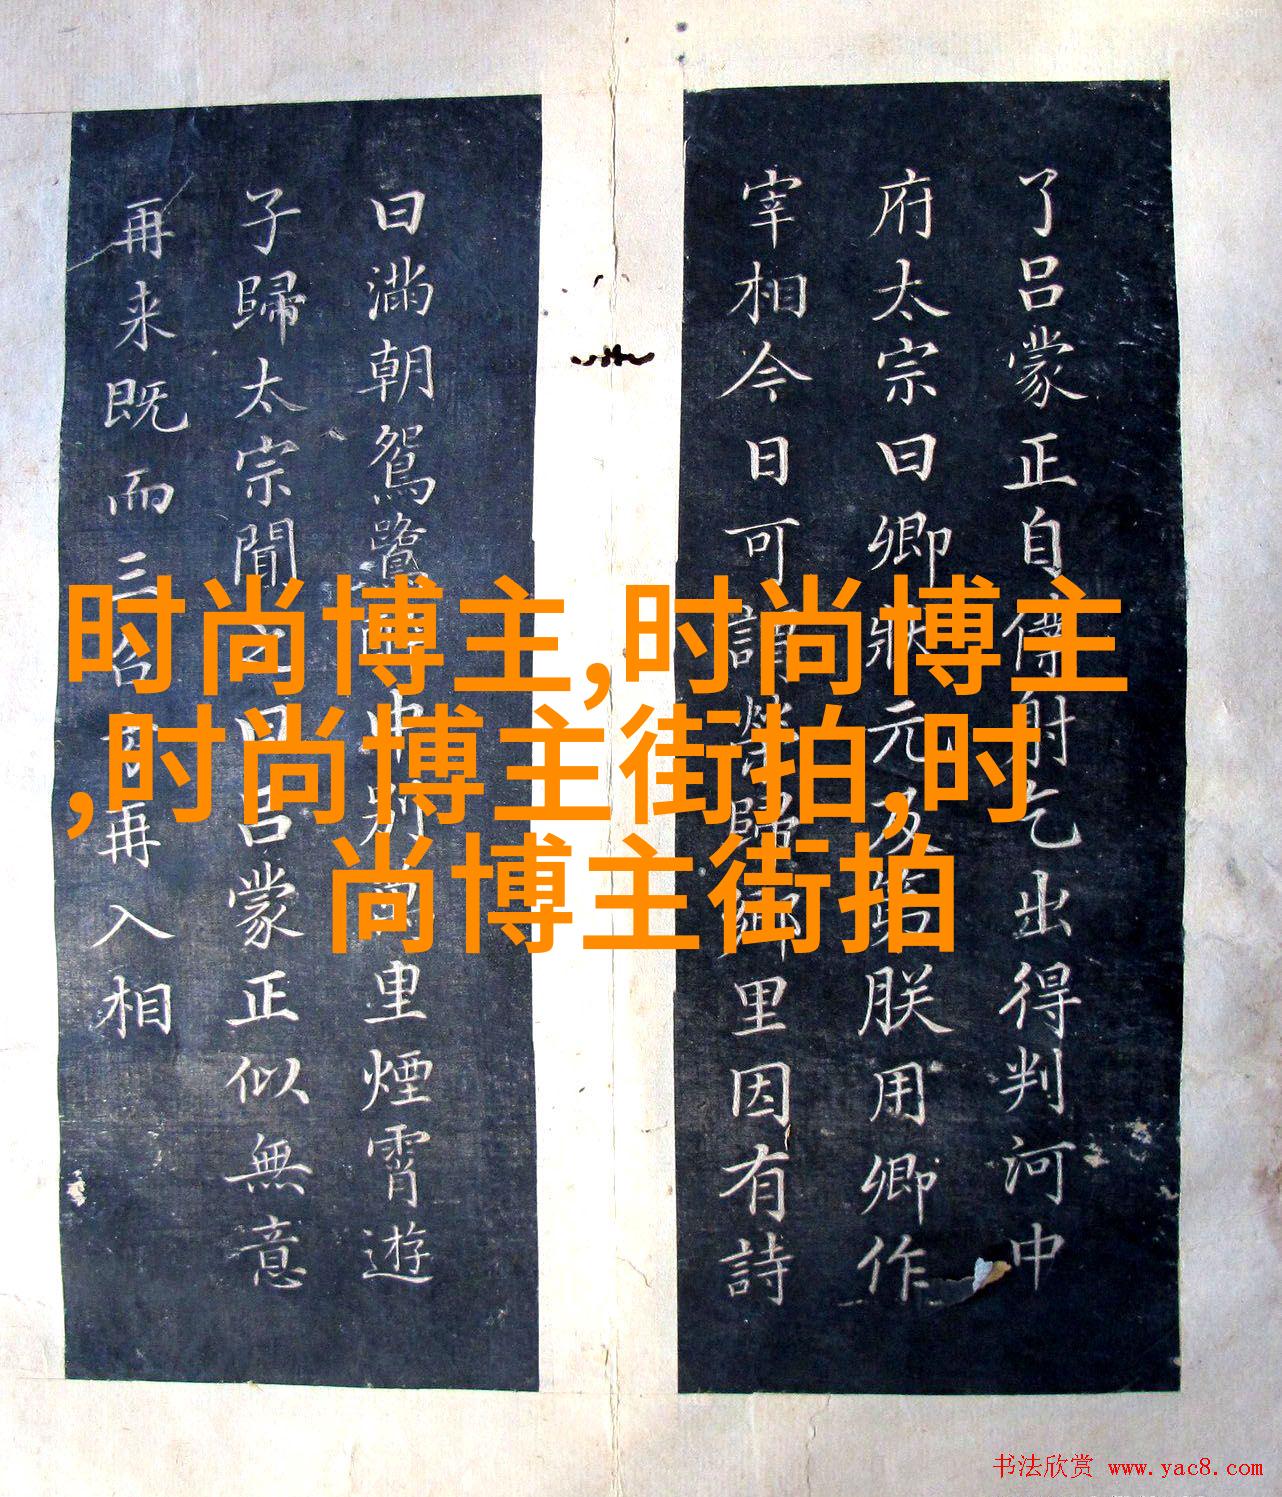 了吕蒙正自射乞出得判河中
府太宗曰卿狀元及第朕用卿作
宰相今日可謂榮歸鄉里因有詩
曰滿朝鴛鷺中别里煙霄遊
子歸太宗聞之曰吕蒙正似無意
再来既而三召再入相
时尚博主,时尚博主
,时尚博主街拍,时
尚博主街拍
书法欣赏 www.yac8.com